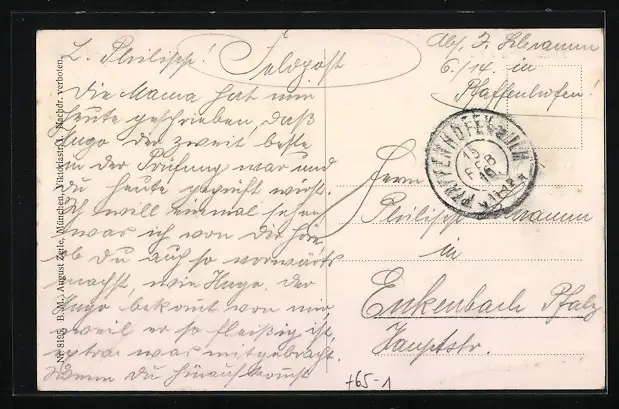 L. Philipp!
Feldpost
Die Mama hat mir
heute geschrieben, daß
Hugo der zweit beste
in der Prüfung war und
du heute geprüft wirst.
Ich will einmal sehen
was ich von Dir höre
ob Du auch so vorwärts
machst, wie Hugo. Der
Hugo bekomt von mir,
weil er so fleißig ist
extra was mitgebracht.
Wenn Du hinauf komst
Abs. J. Schramm
6./14. in
Pfaffenhofen
PFAFFENHOFEN
15 FEB
Herrn
Philipp Schramm
in
Enkenbach Pfalz
Hauptstr.
+65-1
Nr. 8195 B. M.) August Zerle, München, Viktoriastr. 1. Nachdr. verboten.